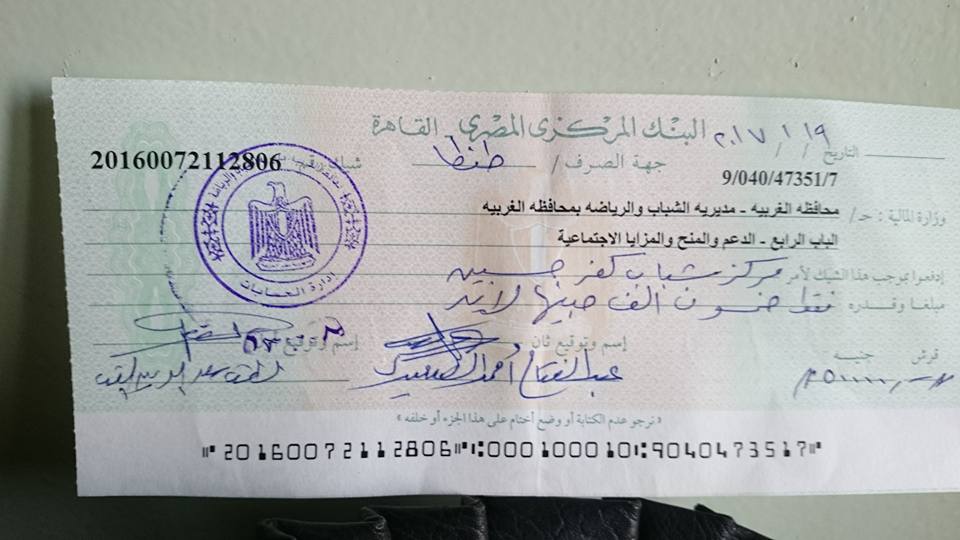 البنك المركزى المصرى - القاهرة
التاريخ ٢٠١٧/١/١٩
جهة الصرف / طنطا
شيك رقم 20160072112806
9/040/47351/7
وزارة المالية : حـ / محافظه الغربيه - مديريه الشباب والرياضه بمحافظه الغربيه
الباب الرابع - الدعم والمنح والمزايا الاجتماعية
إدفعوا بموجب هذا الشيك لأمر مركز شباب كفر حسين
مبلغا وقدره فقط خمسون الف جنيها لاغير
قرش جنيه
إسم وتوقيع ثان
إسم وتوقيع
عبد الفتاح أحمد
إدارة الحسابات
« نرجو عدم الكتابة أو وضع أختام على هذا الجزء أو خلفه »
⑈20160072112806⑈⑆000100010⑆9040473517⑈